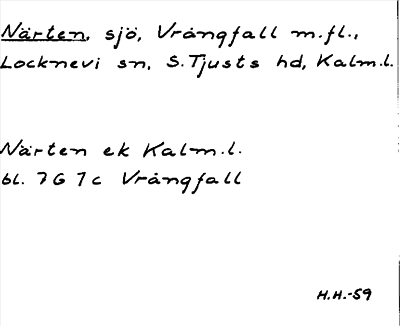 Närten, sjö, Vrångfall m.fl.,
Locknevi sn, S. Tjusts hd, Kalm.l.
Närten ek Kalm.l.
bl. 7G 7c Vrångfall
H.H.-59